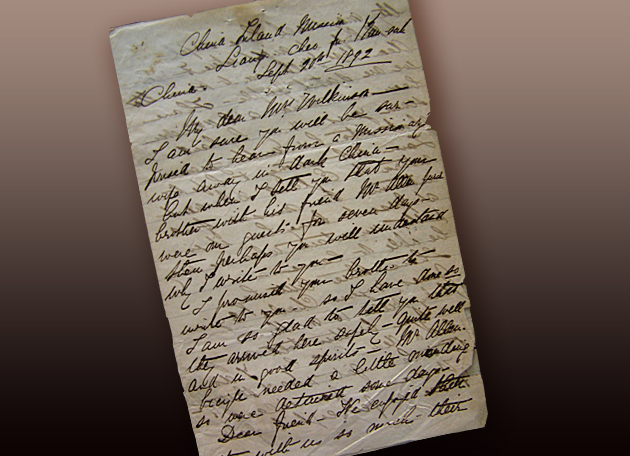 China Inland Mission
Liang Cheo fu Kan suh
Sept 20th 1892
China.
My dear Mrs Wilkinson—
I am sure you will be sur-
prised to hear from a missionary
wife away in dark China—
but when I tell you that your
brother with his friend Mr Allen have
were our guests for seven days—
then perhaps you will understand
why I write to you—
I promised your brother to
write to you— so I have done so
I am so glad to tell you that
they arrived here safely— quite well
and in good spirits— Mr Allen.
bicycle needed a little mending
so were detained some days—
Dear friend— He enjoyed
with us so much their